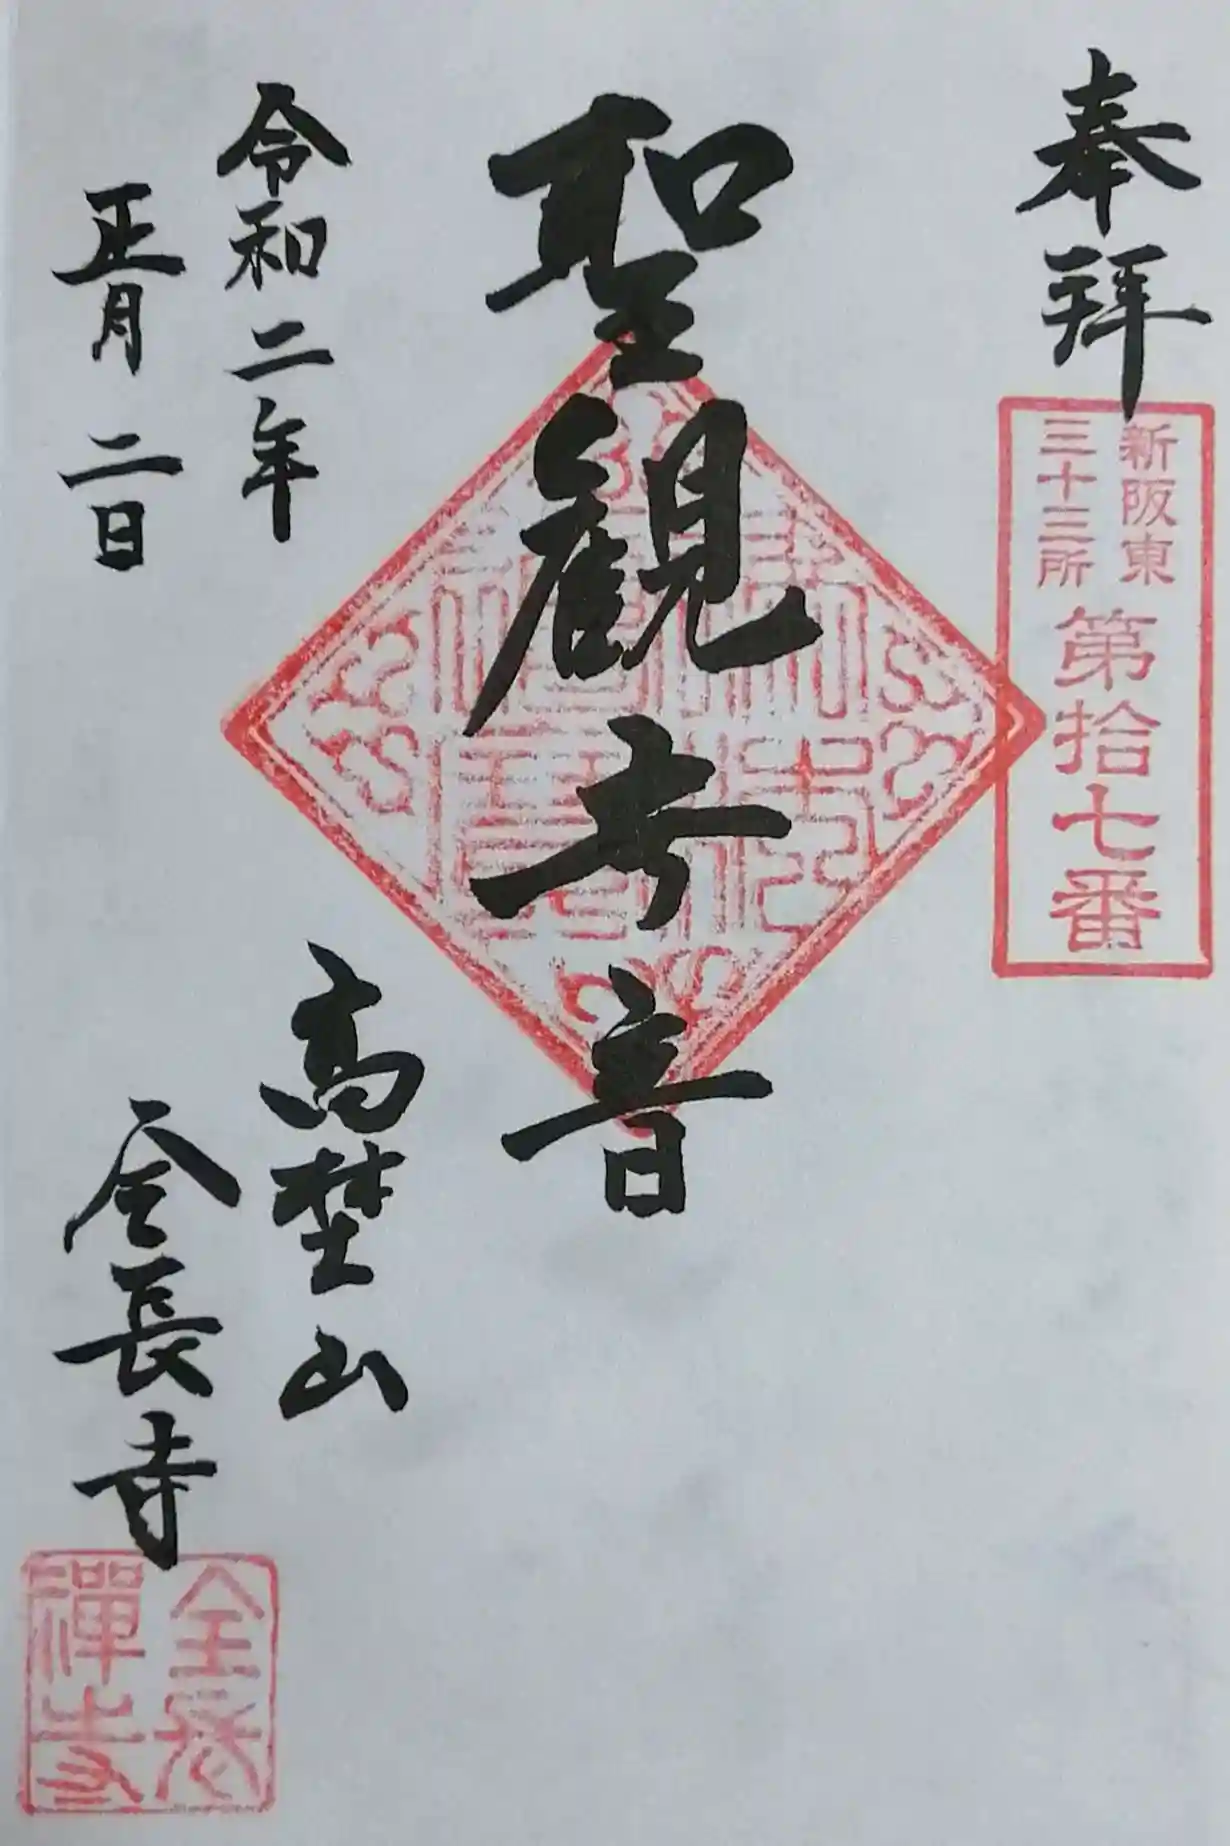 奉拝
新阪東
三十三所
第拾七番
聖観世音
令和二年
正月二日
高埜山
全長寺
全長
禅寺